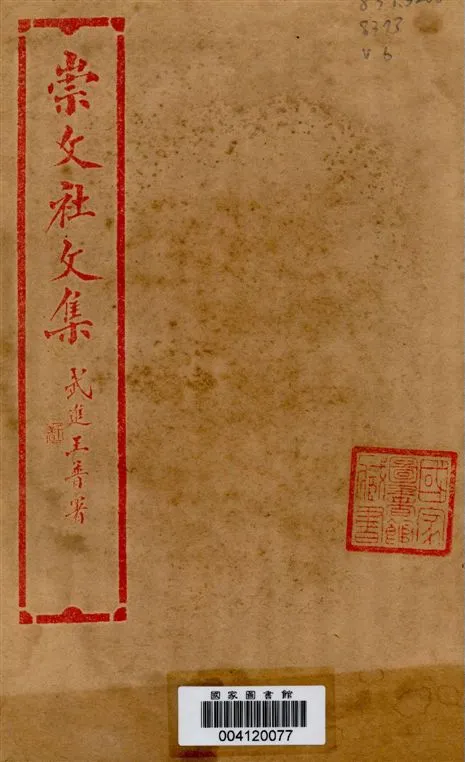 崇文社文集
武進王善署
國家圖書館藏書
8373
v 6
國家圖書館
004120077